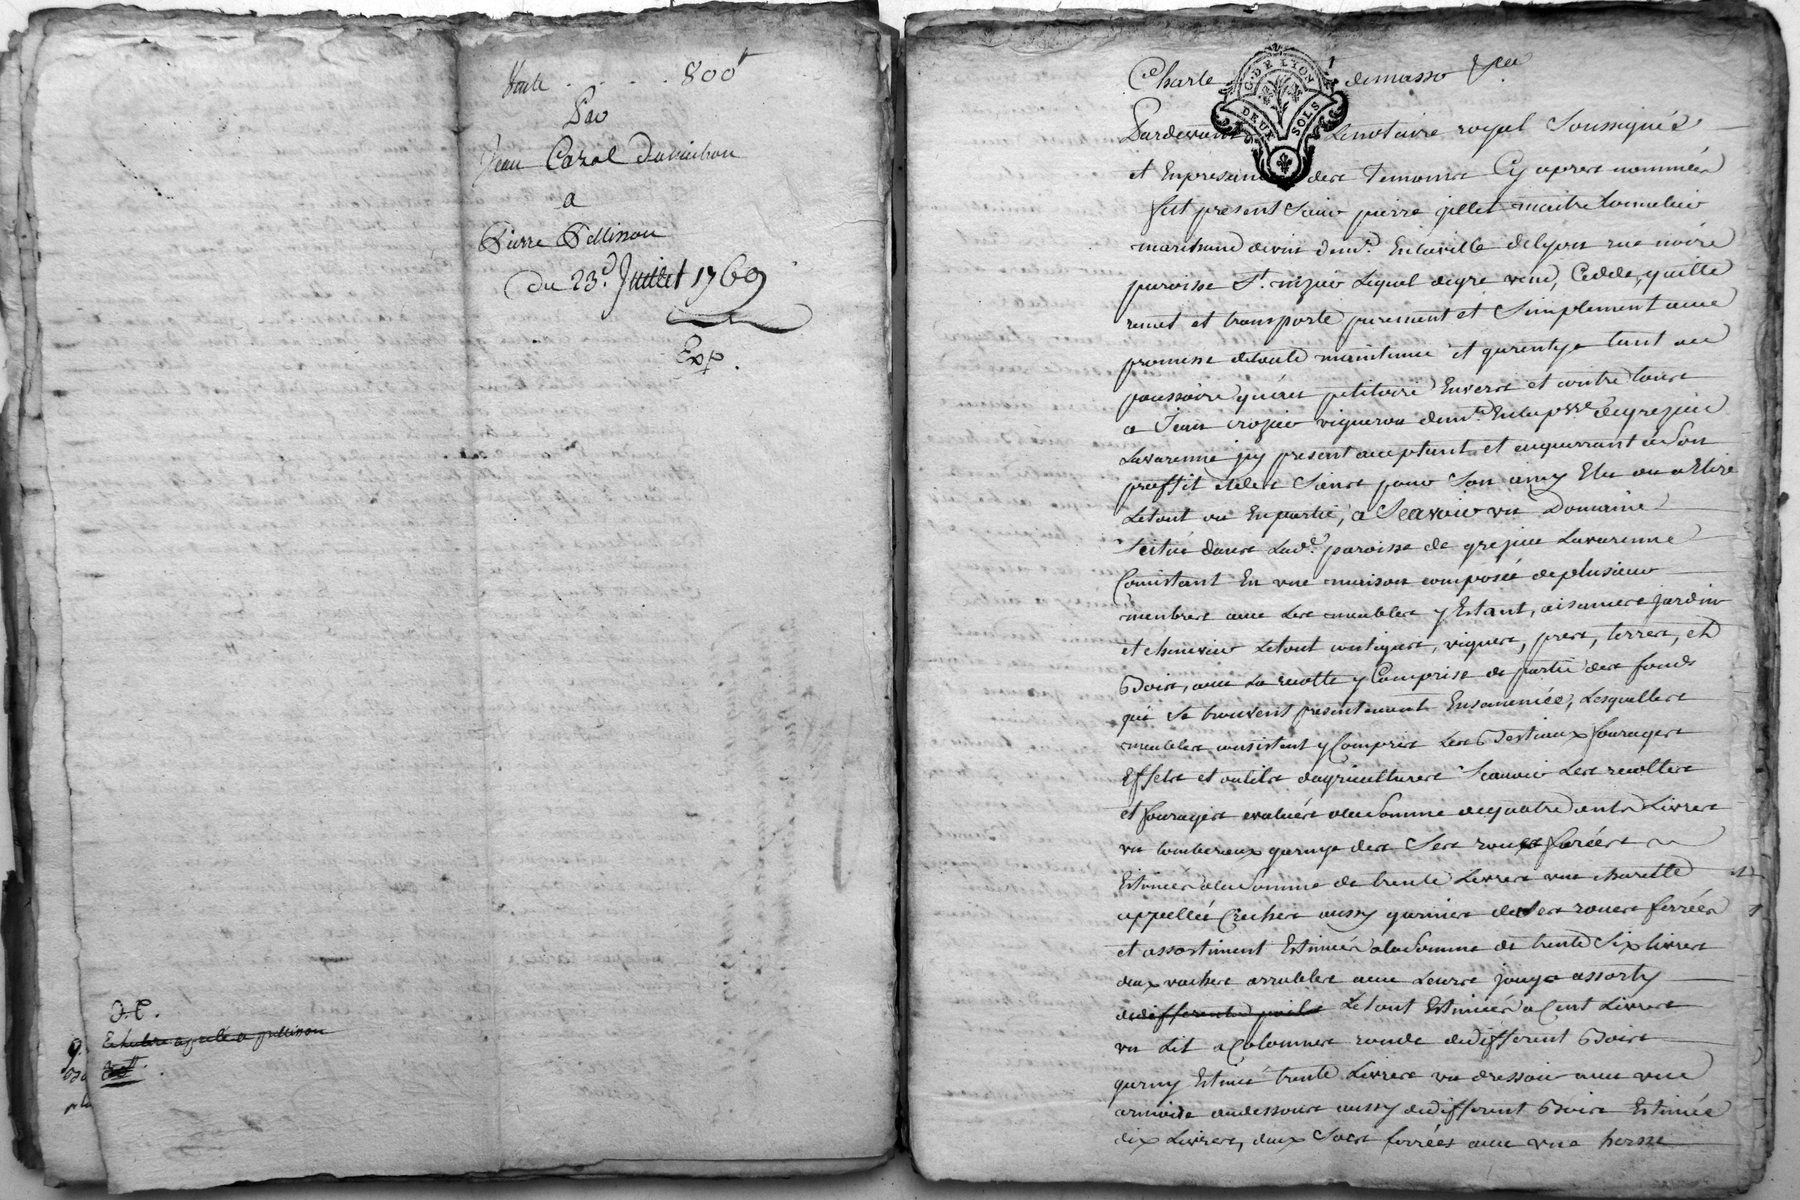 Vente . . . 800#
Par
Jean Cazal
a
Pierre Pellisson
du 23.e Juillet 1769
Exp.
Charle demasso
G. DE LYON
DEUX SOLS
Pardevant Le notaire royal Soussigné
et En presence des Temoins Cy apres nommés
fut present Sieur pierre gillet maitre tonnelier
marchand de vin demt. En la ville de lyon rue noire
paroisse St. nizier Lequel de gre vend, Cedde, quitte
remet et transporte purement et Simplement avec
promesse de toute maintenue et garentye tant au
possessoire qu'au petitoire Envers et contre tous
a Jean crozier vigneron demt. En la psse de grezieu
Lavarenne icy present acceptant et acquerrant a Son
proffit et des Siens pour Son amy Elu ou a Elire
Le tout ou En partie, a Scavoir un Domaine
Scitué dans Lad. paroisse de grezieu Lavarenne
Consistant En une maison composée de plusieurs
membres avec Les meubles y Estant, aisances Jardin
et cheneviere Le tout contigus, vignes, prés, terres, et
Bois, avec La recolte y Comprise de partie des fonds
qui Se trouvent presentement Ensemencée, Lesquelles
meubles consistent y Compris Les Bestiaux fourages
Effets et outils d'agricultures Scavoir Les recoltes
et fourages evalués a la Somme de quatre cents Livres
un tombereaux garnye des Ses roues ferées
Estimés a la Somme de trente Livres une charette
appellée Creches aussy garnies de Ses roues ferrées
et assortiment Estimés a la Somme de trente Six livres
deux vaches arrables avec Leurs joug assorty
de differends poils Le tout Estimés a Cent Livres
un Lit a Colonnes ronde de different Bois
garny Estimé trente Livres un dressoir avec une
armoire au dessous aussy de different Bois Estimée
dix Livres, deux Socs ferrées avec une herse